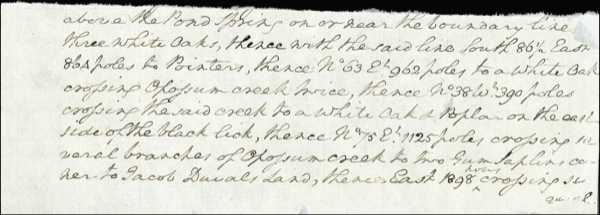 above the Pond Spring on or near the boundary line
three White Oaks, thence with the said line South 86½ East
864 poles to Pointers, thence No 63 Et 962 poles to a White Oak
crossing Opossum creek twice, thence No 38 Wt 390 poles
crossing the said creek to a White Oak & Poplar on the east
side of the black lick, thence No 75 Et 1125 poles crossing se
veral branches of Opossum creek to two Gum Saplins co
ner to Jacob Duvals Land, thence East 1898 poles crossing se